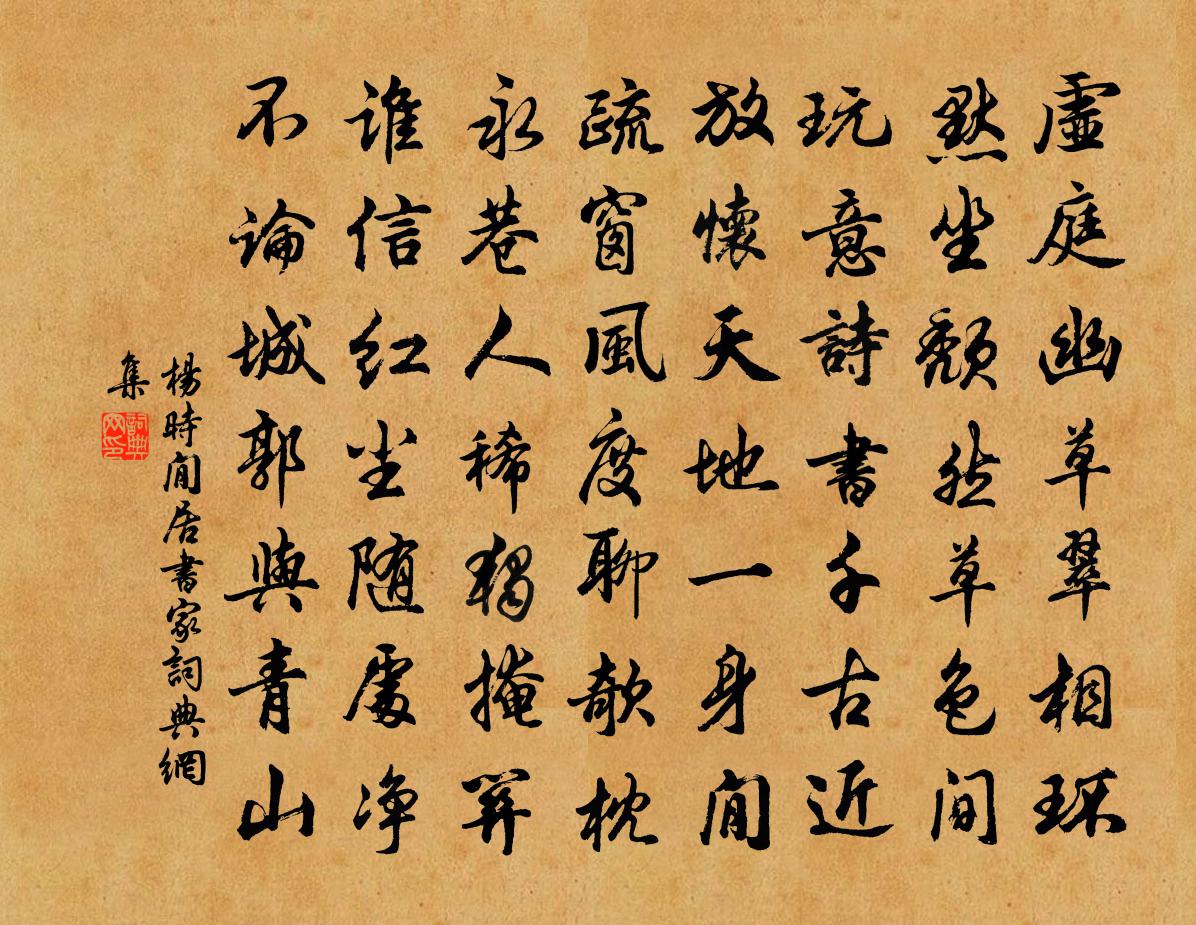 虛庭幽草翠相环
黙坐頽然草色間
玩意詩書千古近
放懷天地一身閒
疏窗風度聊欹枕
永巷人稀獨掩關
誰信紅尘随處净
不論城郭與青山
楊時閒居書家詞典網
集
詞典网印